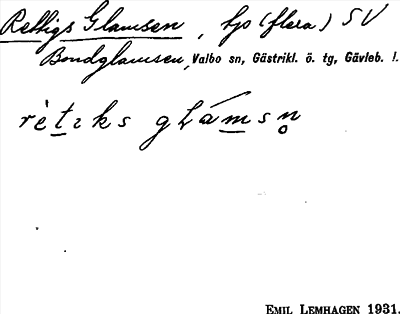 Rettigs Glamsen, tjo (flera) SV
Bondglamsen, Valbo sn, Gästrikl. ö. tg, Gävleb. l.
rètiks glámsn̥
EMIL LEMHAGEN 1931.